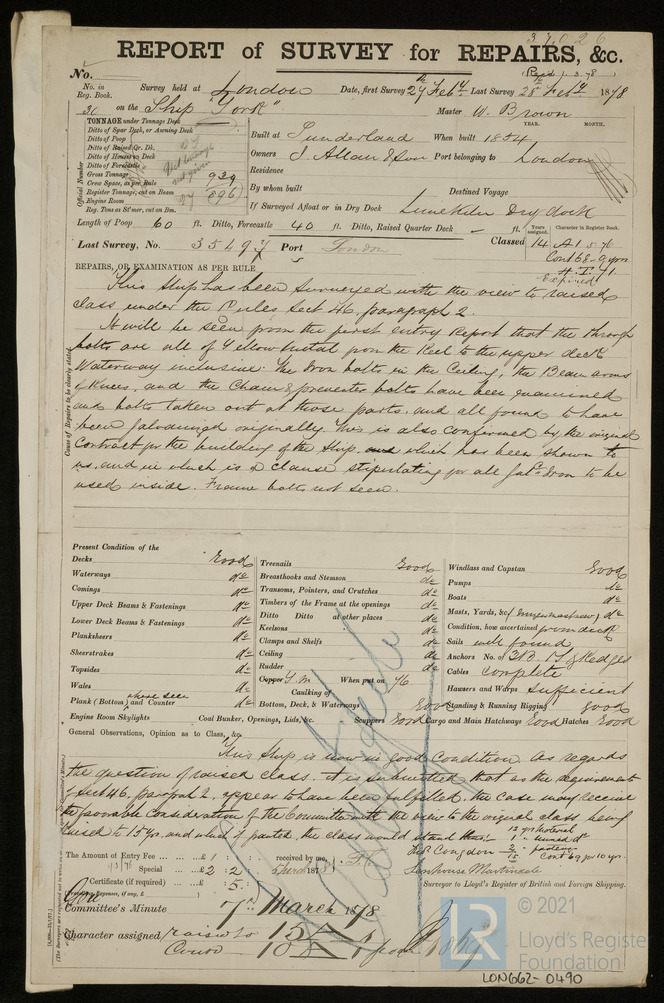 37026
REPORT of SURVEY for REPAIRS, &c.
No.
(Recd 1.3.78)
No. in Reg. Book.
Survey held at London
Date, first Survey 27th Feby
Last Survey 28th Feby 1878
on the Ship "York"
Master W. Brown
YEAR. MONTH.
TONNAGE under Tonnage Deck
Ditto of Spar Deck, or Awning Deck
Ditto of Poop
Ditto of Raised Qr. Dk.
Ditto of Houses on Deck
Ditto of Forecastle
Gross Tonnage
Crew Space, as per Rule
Register Tonnage, cut on Beam 896
Engine Room
Reg. Tons as St'mer, cut on Bm.
Official Number
Built at Sunderland When built 1854
Owners J. Allan & Son Port belonging to London
Residence
By whom built Destined Voyage
If Surveyed Afloat or in Dry Dock Limekiln Dry dock
Length of Poop 60 ft. Ditto, Forecastle 40 ft. Ditto, Raised Quarter Deck - ft.
Years assigned. Character in Register Book.
Last Survey, No. 35497 Port London
Classed 14 A1 5.76
Cont 68-9 yrs
Expired
REPAIRS, OR EXAMINATION AS PER RULE
This Ship has been surveyed with the view to raised
class under the Rules Sect 46, paragraph 2.
It will be seen from the first entry Report that the through
bolts are all of Yellow Metal from the Keel to the upper deck
Waterway inclusive. The Iron bolts in the Ceiling, the Beam arms
& Knees, and the Chain & preventer bolts have been examined
and bolts taken out at those parts, and all found to have
been Galvanized originally. This is also confirmed by the original
Contract for the building of the Ship, which has been shown to
us, and in which is a clause stipulating for all Galvd Iron to be
used inside. Frame bolts not seen.
Cause of Repairs to be clearly stated.
Present Condition of the
Decks Good
Waterways do
Comings do
Upper Deck Beams & Fastenings do
Lower Deck Beams & Fastenings do
Planksheers do
Sheerstrakes do
Topsides do
Wales do
Plank (Bottom) where seen and Counter do
Engine Room Skylights
Treenails Good
Breasthooks and Stemson do
Transoms, Pointers, and Crutches do
Timbers of the Frame at the openings do
Ditto Ditto at other places do
Keelsons do
Clamps and Shelfs do
Ceiling do
Rudder do
Copper Y.M. When put on 76
Caulking of
Bottom, Deck, & Waterways Good
Coal Bunker, Openings, Lids, &c. Scuppers Good
Windlass and Capstan Good
Pumps do
Boats do
Masts, Yards, &c. do
Condition, how ascertained from deck
Sails well found
Anchors No. of 3 B. 1 S. & Kedges
Cables complete
Hawsers and Warps sufficient
Standing & Running Rigging good
Cargo and Main Hatchways Good Hatches Good
General Observations, Opinion as to Class, &c.
This Ship is now in good Condition. As regards
the question of raised class, it is submitted that as the requirements
of Sect 46, paragph 2, appear to have been fulfilled, the case may receive
the favorable consideration of the Committee with the view to the original class being
raised to 15 yrs, and which if granted, the class would stand thus:
12 yrs Material
Cont 69 for 10 yrs.
The Amount of Entry Fee ... £ 1 : : received by me,
Special ... £ 2 : 2 : March 1878
Certificate (if required) ... : 5 :
Surveyor to Lloyd's Register of British and Foreign Shipping.
Committee's Minute 7th March 1878
Character assigned raised to 15 A 1
© 2021
LR
Lloyd's Register
Foundation
LON662-0490